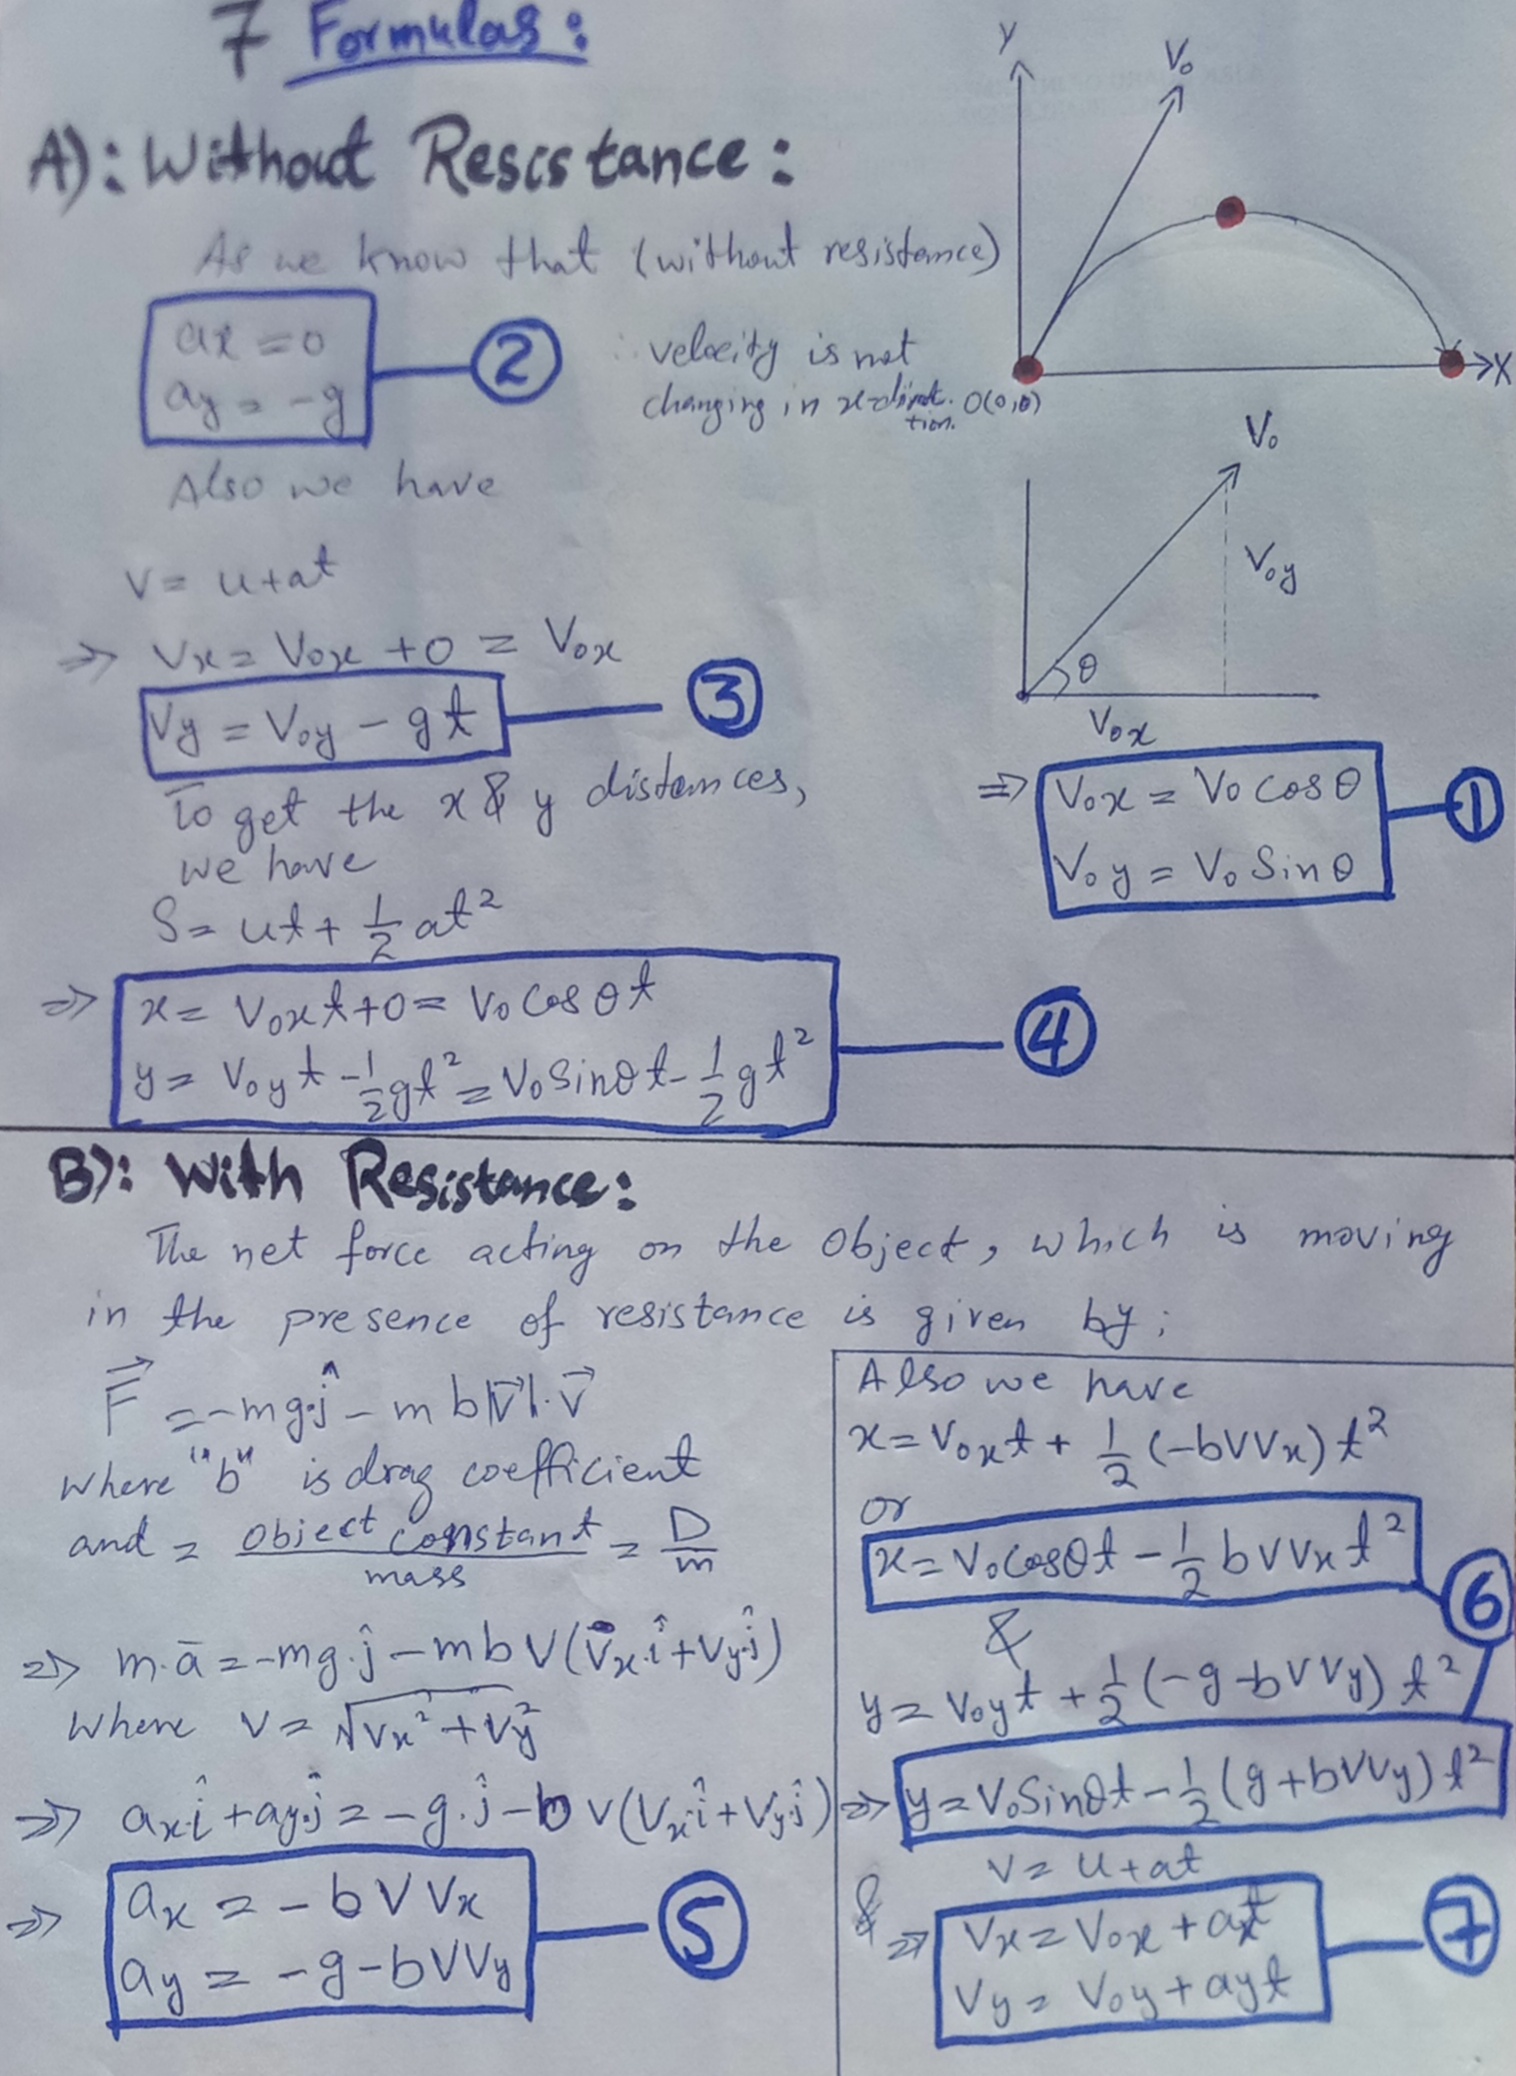 7 Formulas:
A): Without Resistance:
As we know that (without resistance)
ax = 0
ay = -g
2
∵ velocity is not
changing in x-direc
tion.
Y
V₀
X
O(0,0)
Also we have
V = u+at
⇒ Vx = V₀x + 0 = V₀x
Vy = V₀y - gt
3
V₀
V₀y
θ
V₀x
⇒ V₀x = V₀ cosθ
V₀y = V₀ Sinθ
1
To get the x & y distances,
we have
S = ut + 1/2 at²
⇒ x = V₀xt+0 = V₀ Cosθt
y = V₀yt - 1/2 gt² = V₀Sinθt - 1/2 gt²
4
B): With Resistance:
The net force acting on the object, which is moving
in the presence of resistance is given by;
F⃗ = -mg.ĵ - mb|V⃗|.V⃗
where "b" is drag coefficient
and = object constant/mass = D/m
⇒ m.ā = -mg.ĵ - mbV(Vx.î+Vy.ĵ)
Where V = √Vx²+Vy²
⇒ ax.î + ay.ĵ = -g.ĵ - bV(Vx.î+Vy.ĵ)
⇒ ax = -bVVx
ay = -g-bVVy
5
Also we have
x = V₀xt + 1/2 (-bVVx) t²
or
x = V₀Cosθt - 1/2 bVVxt²
&
6
y = V₀yt + 1/2 (-g-bVVy) t²
⇒ y = V₀Sinθt - 1/2 (g+bVVy) t²
& V = u+at
⇒ Vx = V₀x + axt
Vy = V₀y + ayt
7